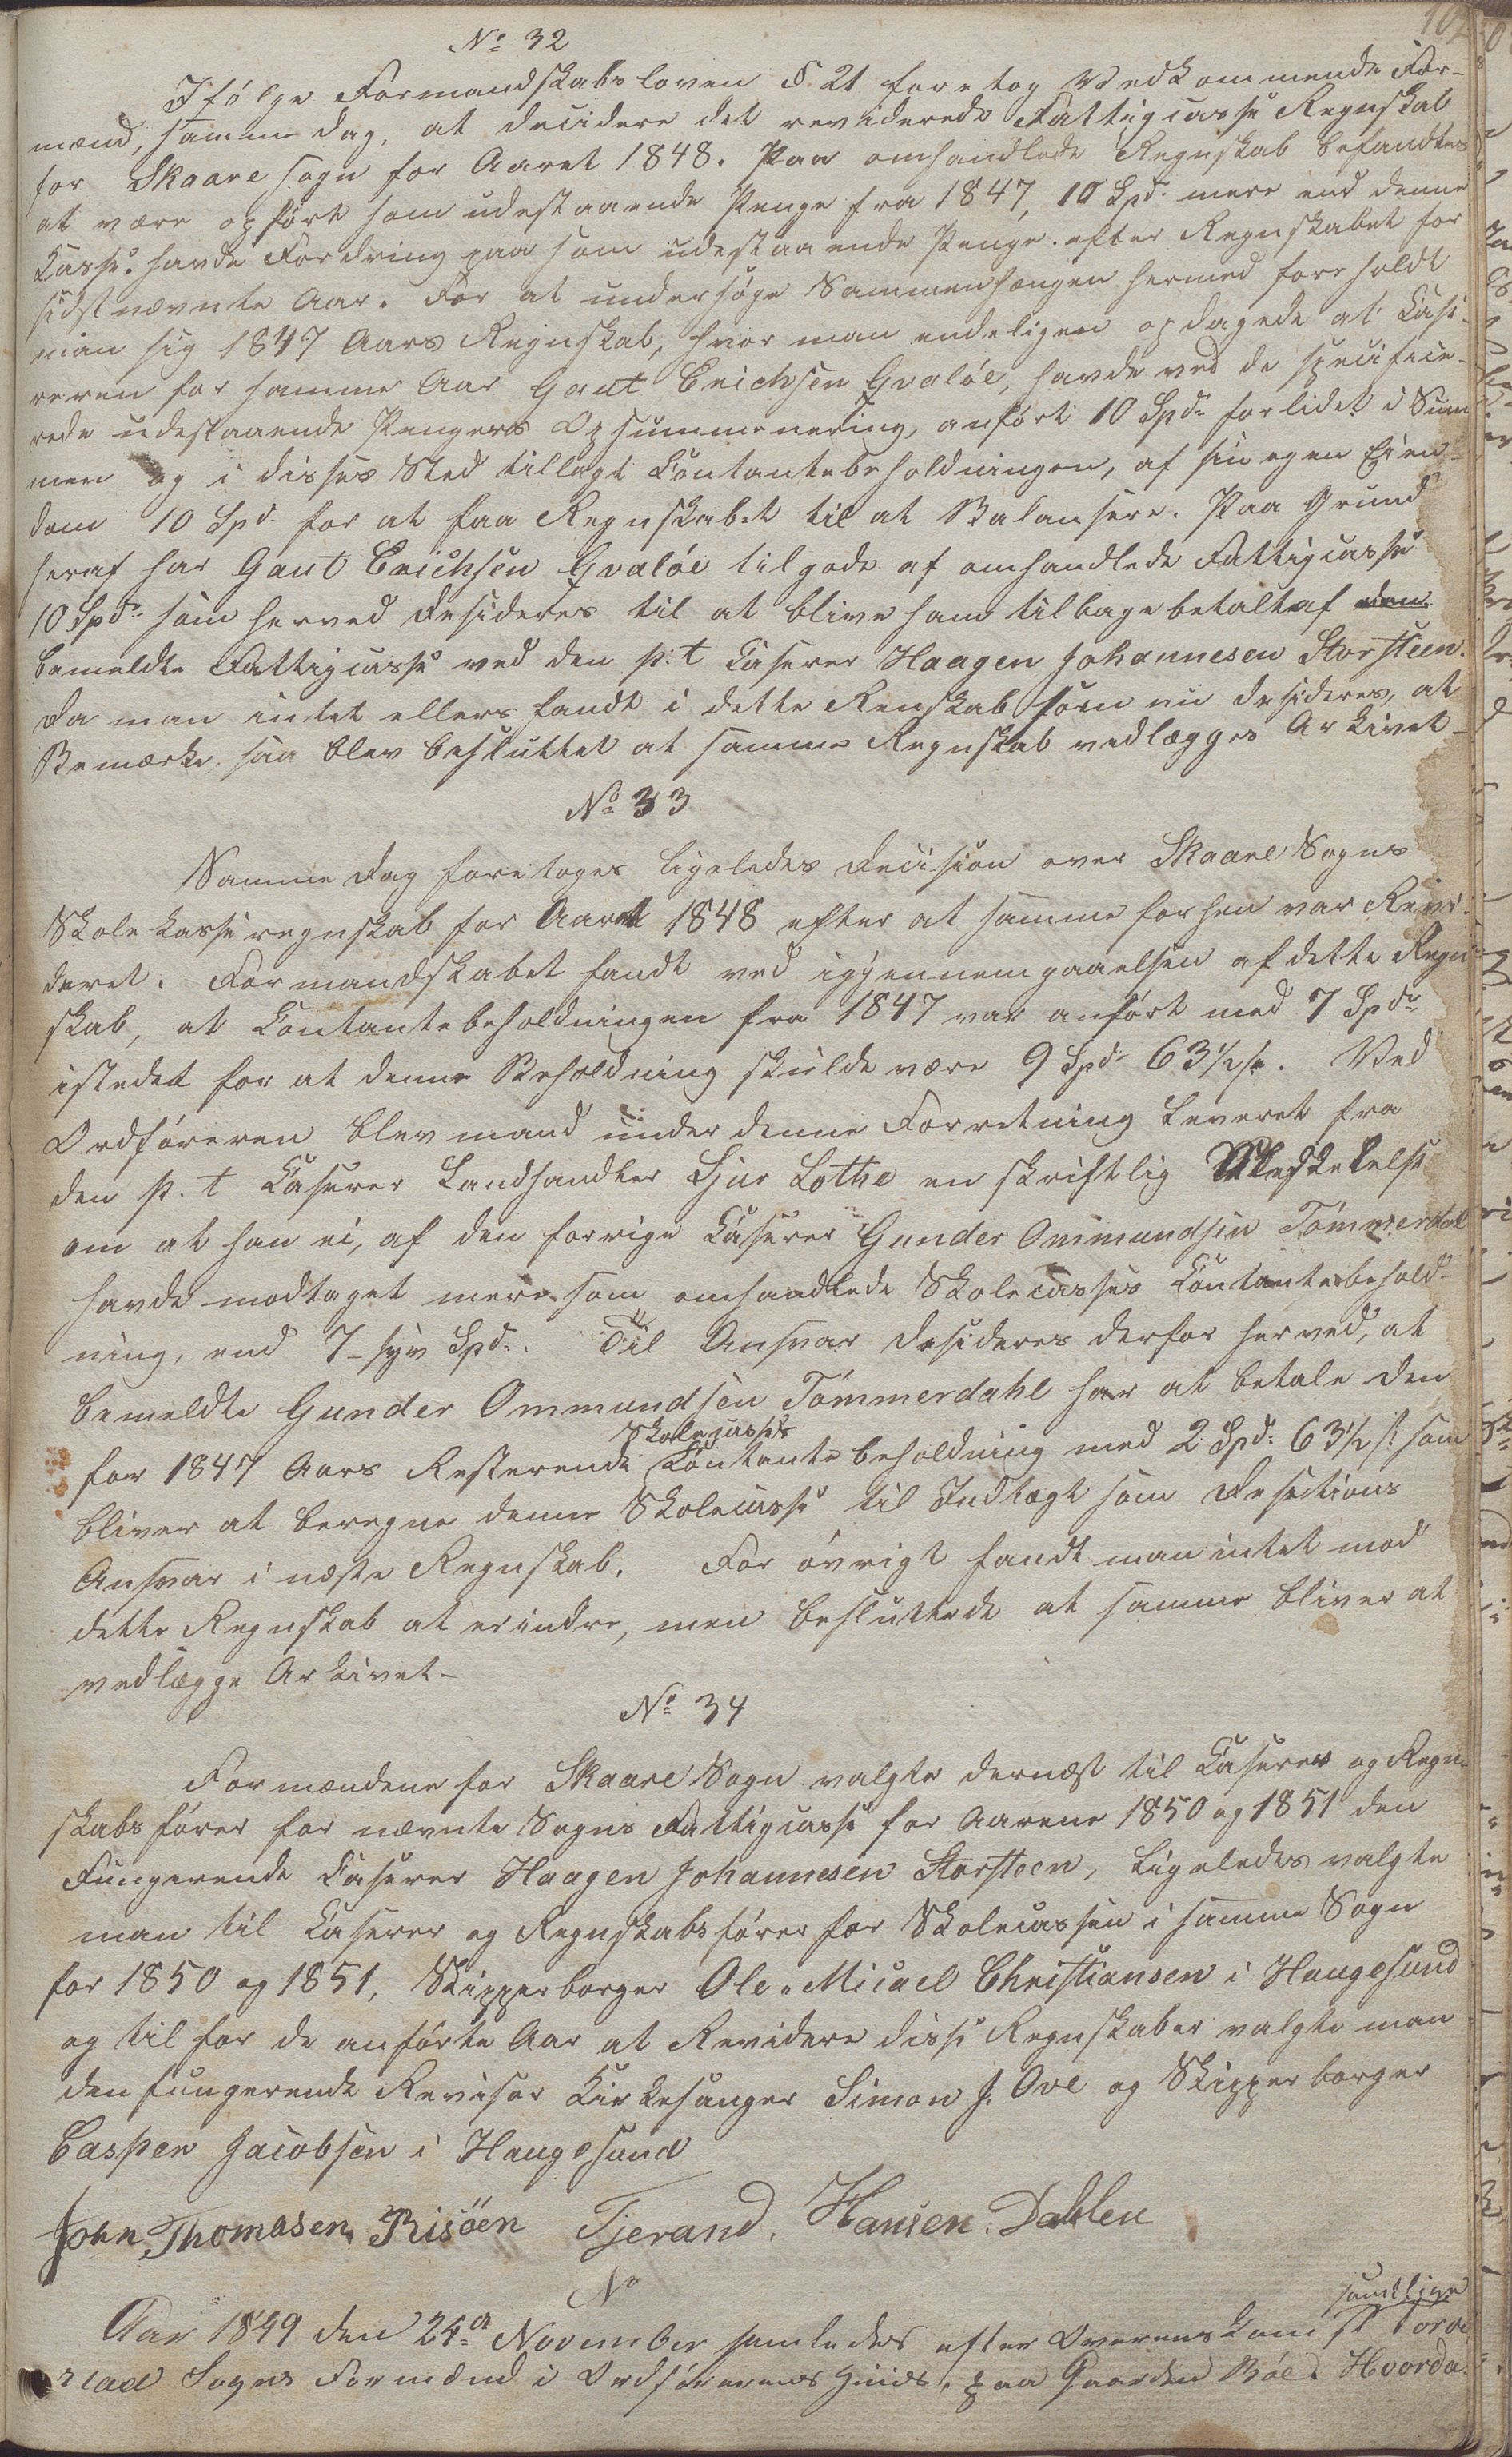 No 32
Ifølge Formandskabsloven §. 21 foretog Vedkommende For-
mænd, samme Dag, at decidere det reviderede Fattigcasse Regnskab
for Skaare sogn for Aaret 1848. Paa omhandlede Regnskab befandtes
at være opført som udestaaende Penge fra 1847, 10 Spd. mere end denne
Kasse havde Fordring paa som udestaaende Penge efter Regnskabet for
sidstnævnte Aar. For at undersøge Sammenhængen hermed foreholdt
man sig 1847 Aars Regnskab, hvor man endeligen opdagede at Case-
reren for samme Aar Gaut Erichsen Gvaløe, havde ved de specifice-
rede udestaaende Pengers Opsummenering, anført 10 Spdr forlidet i Sum
men og i disses Sted tillagt Contantebeholdningen, af sin egen Eien-
dom 10 Spd. for at faa Regnskabet til at Balansere. Paa Grund
heraf har Gaut Erichsen Gvaløe tilgode af omhandlede Fattigcasse
10 Spdr som herved desideres til at blive ham tilbagebetalt af den
bemeldte Fattigcasse ved den p. t Caserer Haagen Johannesen Storsteen.
Da man intet ellers fandt i dette Renskab som nu desideres, at
Bemærke, saa blev besluttet at samme Regnskab vedlægges Arkivet-
No 33
Samme Dag foretoges ligeledes Decision over Skaare Sogns
Skolekasseregnskab for Aaret 1848 efter at samme forhen var Revi-
deret. Formandskabet fandt ved igjennemgaaelsen af dette Regn-
skab, at Contantebeholdningen fra 1847 var anført med 7 Spdr
istedet for at denne Beholdning skulde være 9 Spd 63½ s. Ved
Ordføreren blev mand under denne Forretning Leveret fra
den p. t Caserer Landhandler Sjur Lothe en skriftlig
om at han ei, af den forrige Caserer Gunder Ommundsen Tømmerdal
havde modtaget mere som omhandlede Skolecasses Contantebehold-
ning, end 7- syv Spd. Til Ansvar desideres derfor herved, at
bemeldte Gunder Ommundsen Tømmerdahl har at betale den
Skolecasses
for 1847 Aars Resterende Contante beholdning med 2 Spd: 63½ s som
bliver at beregne denne Skolecasse til Indtægt som Desections
Ansvar i næste Regnskab. For øvrigt fandt man intet mod
dette Regnskab at erindre, men besluttede at samme bliver at
vedlægge Arkivet-
No 34
Formændene for Skaare Sogn valgte dernæst til Caserer og Regn-
skabsfører for nævnte Sogns Fattigcasse for Aarene 1850 og 1851 den
Fungerende Caserer Haagen Johannesen Storsteen, ligeledes valgte
man til Caserer og Regnskabsfører for Skolecassen i samme Sogn
for 1850 og 1851, Skipperborger Ole Micael Christiansen i Haugesund
og til for de anførte Aar at Revidere disse Regnskaber valgte man
den fungerende Revisor Kirkesanger Simon J. Ove og Skipperborger
Casper Jacobsen i Haugesund
John Thomasen Risøen Tjerand. Hansen. Dahlen
No
samtlige
Aar 1849 den 24de November samledes efter Overenskomst Torve
stad Sogns Formænd i Ordførerens Huus, paa Gaarden Bøe Hvorda